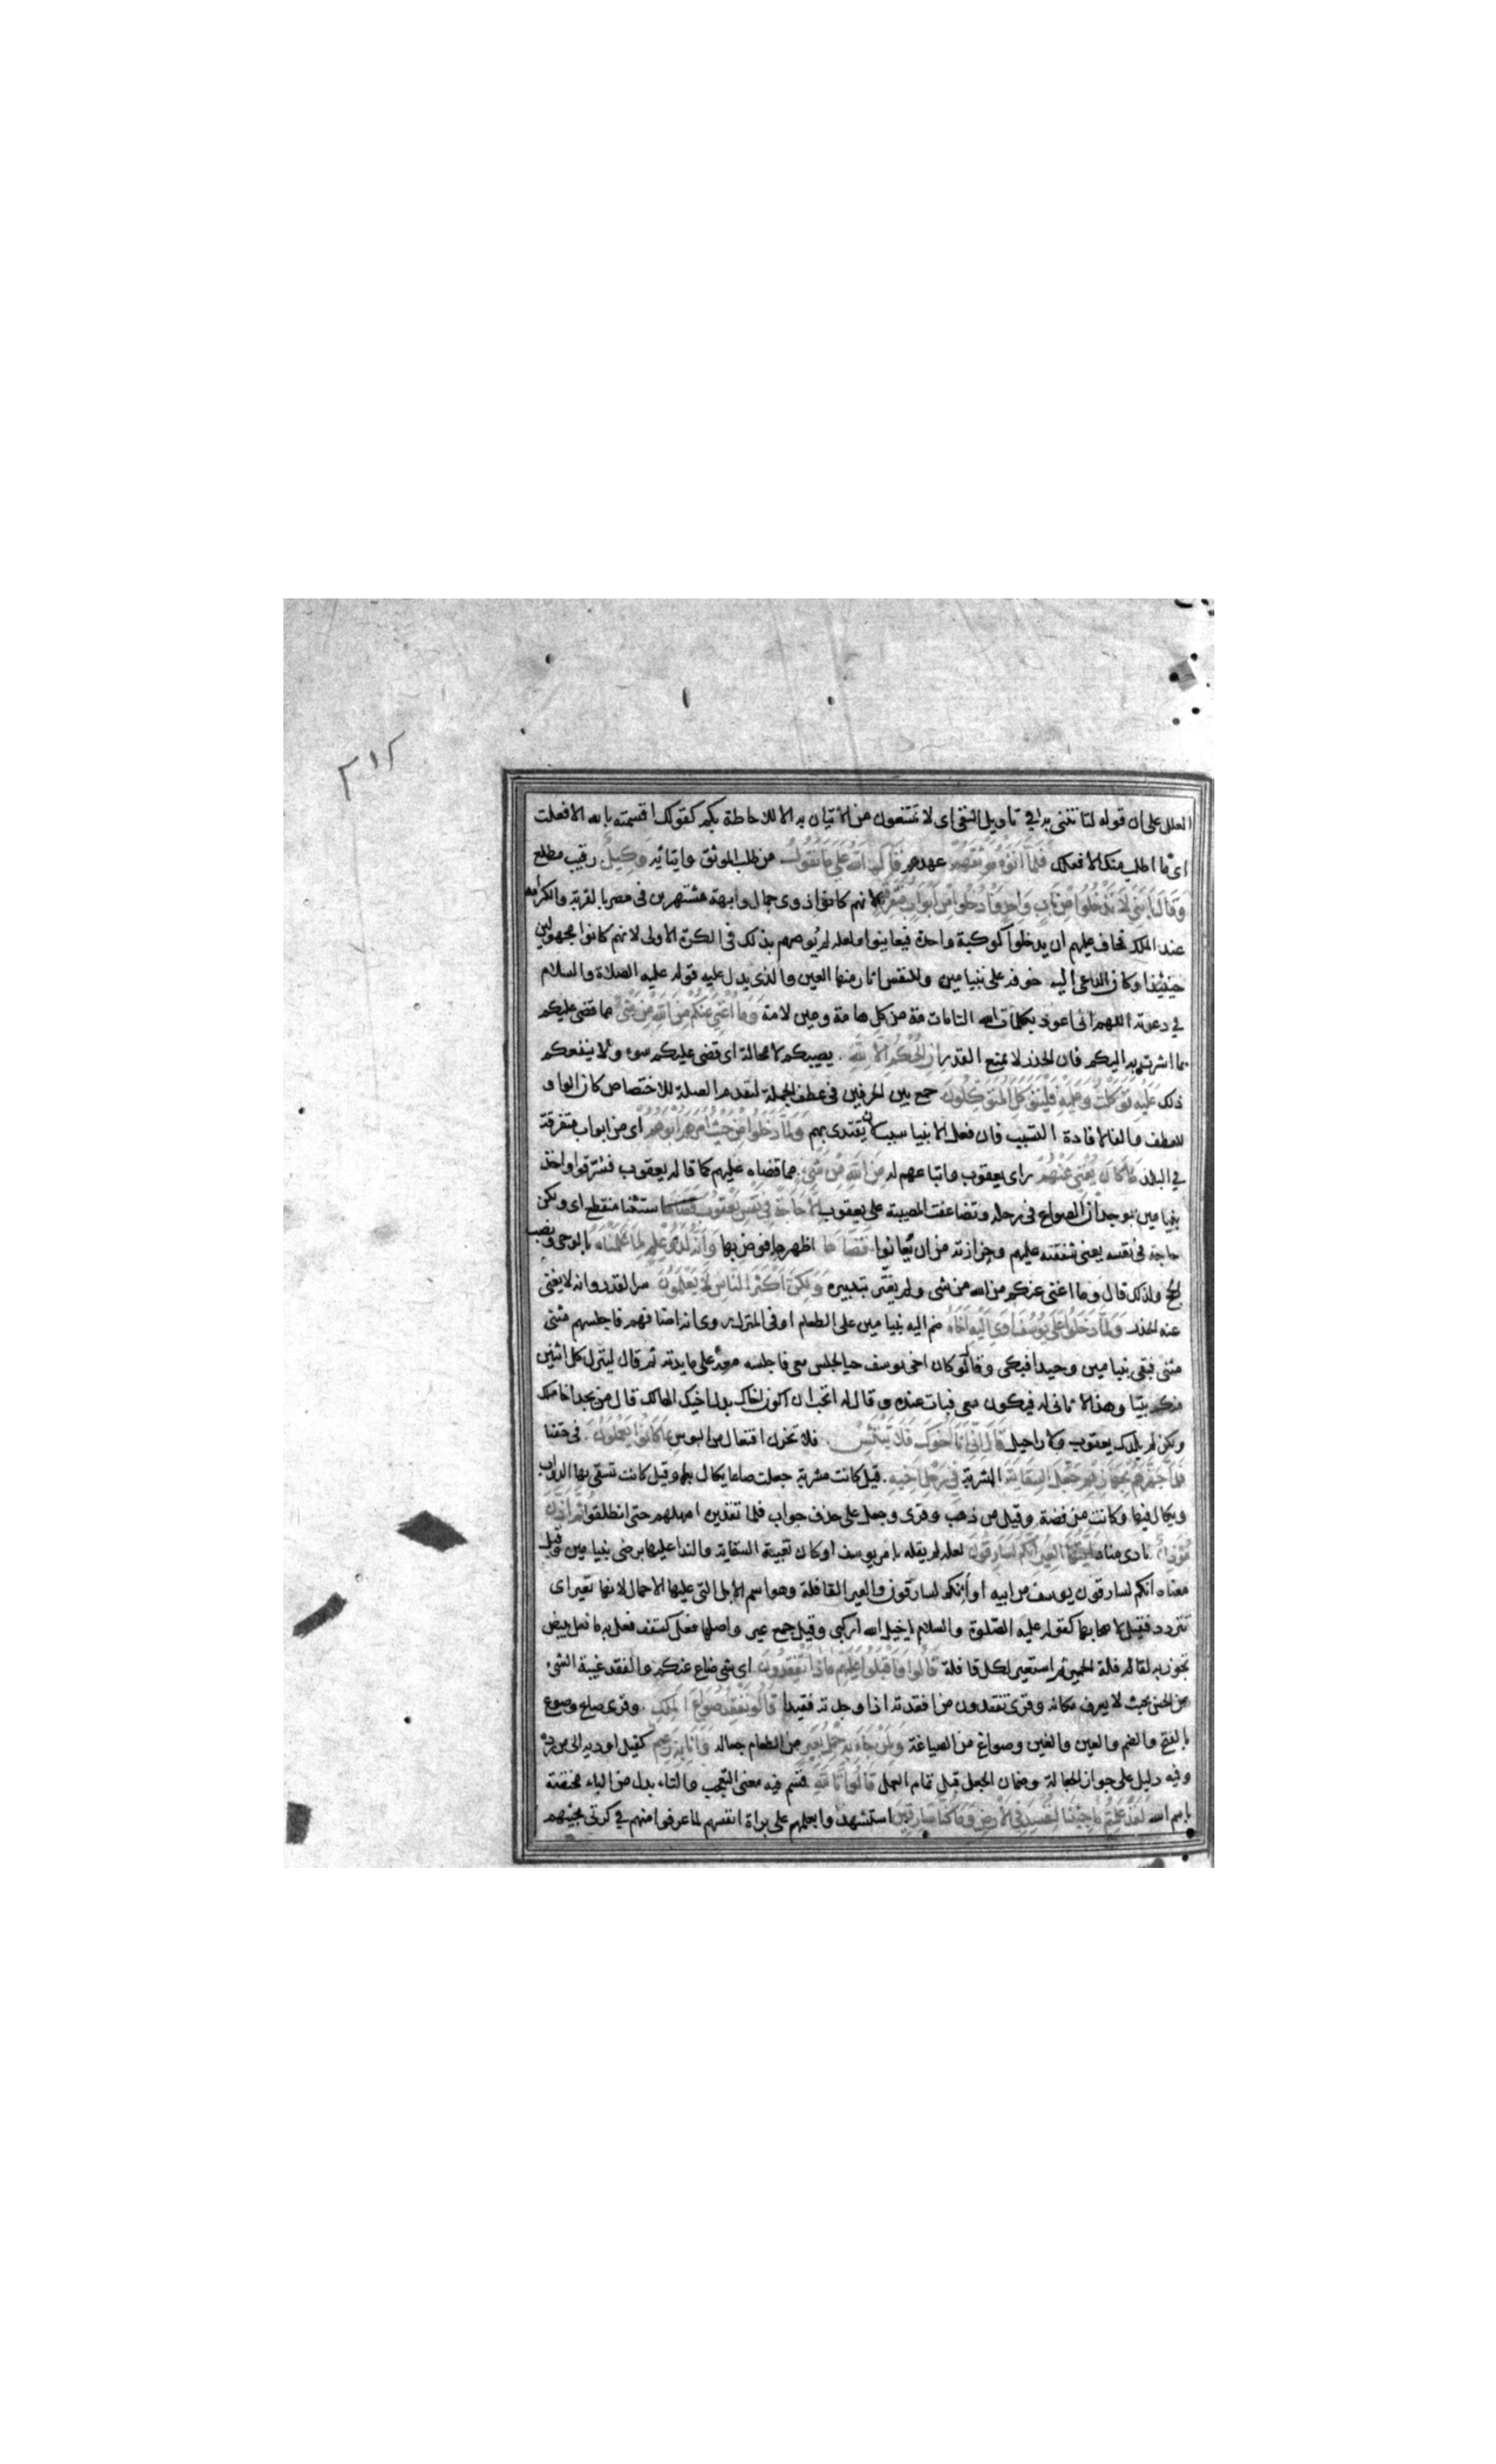 ٣١٢
العلل على ان قوله لتاتنني به في تاويل النفي اى لا تمتنعون من الاتيان به الا للاحاطة بكم كقولك اقسمت بالله الا فعلت
اى ما اطلب منك الا فعلك فَلَمَّا آتَوْهُ مَوْثِقَهُمْ عهدهم قَالَ اللَّهُ عَلَى مَا نَقُولُ من طلب الموثق وايتائه وَكِيلٌ رقيب مطلع
وَقَالَ يَا بَنِيَّ لَا تَدْخُلُوا مِنْ بَابٍ وَاحِدٍ وَادْخُلُوا مِنْ أَبْوَابٍ مُتَفَرِّقَةٍ لانهم كانوا ذوى جمال وابهة مشتهرين فى مصر بالقربة والكرامة
عند الملك فخاف عليهم ان يدخلوا كوكبة واحدة فيعانوا ولعله لم يوصهم بذلك فى الكرة الاولى لانهم كانوا مجهولين
حينئذ او كان الداعى اليه خوفه على بنيامين وللنفس اثار منها العين والذى يدل عليه قوله عليه الصلاة والسلام
في عوذته اللهم انى اعوذ بكلمات الله التامات مة من كل هامة وعين لامة وَمَا أُغْنِي عَنْكُمْ مِنَ اللَّهِ مِنْ شَيْءٍ مما قضى عليكم
بما اشرت به اليكم فان الحذر لا يمنع القدر إِنِ الْحُكْمُ إِلَّا لِلَّهِ يصيبكم لا محالة اى قضى عليكم سوء ولا ينفعكم
ذلك عَلَيْهِ تَوَكَّلْتُ وَعَلَيْهِ فَلْيَتَوَكَّلِ الْمُتَوَكِّلُونَ جمع بين الحرفين فى عطف الجملة لتقدم الصلة للاختصاص كان الواو
للعطف والفا لافادة التسبب فان فعل الانبيا سبب لان يقتدى بهم وَلَمَّا دَخَلُوا مِنْ حَيْثُ أَمَرَهُمْ أَبُوهُمْ اى من ابواب متفرقة
في البلد مَا كَانَ يُغْنِي عَنْهُمْ راى يعقوب واتباعهم له مِنَ اللَّهِ مِنْ شَيْءٍ مما قضاه عليهم كما قاله يعقوب فسرقوا واخذ
بنيامين بوجدان الصواع فى رحله وتضاعفت المصيبة على يعقوب إِلَّا حَاجَةً فِي نَفْسِ يَعْقُوبَ قَضَاهَا استثنا منقطع اى ولكن
حاجة فى نفسه يعنى شفقته عليهم وحزازته من ان يعانوا قَضَاهَا اظهرها فوض بها وَإِنَّهُ لَذُو عِلْمٍ لِمَا عَلَّمْنَاهُ بالوحى ونصب
الحج ولذلك قال وما اغنى عنكم من الله من شى ولم يغتر بتدبيره وَلَكِنَّ أَكْثَرَ النَّاسِ لَا يَعْلَمُونَ سر القدر وانه لا يغنى
عنه الحذر وَلَمَّا دَخَلُوا عَلَى يُوسُفَ آوَى إِلَيْهِ أَخَاهُ ضم اليه بنيامين على الطعام او فى المنزل روى انه اضافهم فاجلسهم مثنى
مثنى فبقى بنيامين وحيدا فبكى وقال لو كان اخى يوسف حيا لجلس معى فاجلسه معه على مايدته ثم قال لينزل كل اثنين
منكم بيتا وهذا لا ثانى له فيكون معى فبات عنده وقال له اتحب ان اكون اخاك بدل اخيك الهالك قال من يجد اخا مثلك
ولكن لم يلدك يعقوب ولا راحيل قَالَ إِنِّي أَنَا أَخُوكَ فَلَا تَبْتَئِسْ فلا تحزن افتعال من البوس بِمَا كَانُوا يَعْمَلُونَ فى حقنا
فَلَمَّا جَهَّزَهُمْ بِجَهَازِهِمْ جَعَلَ السِّقَايَةَ المشربة فِي رَحْلِ أَخِيهِ قيل كانت مشربة جعلت صاعا يكال بها وقيل كانت تسقى بها الدواب
ويكال فيها وكانت من فضة وقيل من ذهب وقرى وجعل على حذف جواب فلما تقديره امهلهم حتى انطلقوا ثُمَّ أَذَّنَ
مُؤَذِّنٌ نادى مناد أَيَّتُهَا الْعِيرُ إِنَّكُمْ لَسَارِقُونَ لعله لم يقله بامر يوسف او كان تعبية السقاية والندا عليها برضى بنيامين وقيل
معناه انكم لسارقون يوسف من ابيه او أئنكم لسارقون والعير القافلة وهو اسم الابل التى عليها الاحمال لانها تعير اى
تتردد فقيل لاصحابها كقوله عليه الصلوة والسلام يا خيل الله اركبى وقيل جمع عير واصلها فعل كسقف فعل به ما فعل ببيض
تجوز به لقافلة الحمير ثم استعير لكل قافلة قَالُوا وَأَقْبَلُوا عَلَيْهِمْ مَاذَا تَفْقِدُونَ اى شى ضاع عنكم والفقد غيبة الشى
عن الحس بحيث لا يعرف مكانه وقرى تفقدون من افقدته اذا وجدته فقيدا قَالُوا نَفْقِدُ صُوَاعَ الْمَلِكِ وقرى صاع وصوع
بالفتح والضم والعين والغين وصواغ من الصياغة وَلِمَنْ جَاءَ بِهِ حِمْلُ بَعِيرٍ من الطعام جعاله وَأَنَا بِهِ زَعِيمٌ كفيل اوديه الى من رده
وفيه دليل على جواز الجعالة وضمان الجعل قبل تمام العمل قَالُوا تَاللَّهِ قسم فيه معنى التعجب والتاء بدل من الباء مختصة
باسم الله لَقَدْ عَلِمْتُمْ مَا جِئْنَا لِنُفْسِدَ فِي الْأَرْضِ وَمَا كُنَّا سَارِقِينَ استشهدوا بعلمهم على براة انفسهم لما عرفوا منهم في كرتى مجيئهم